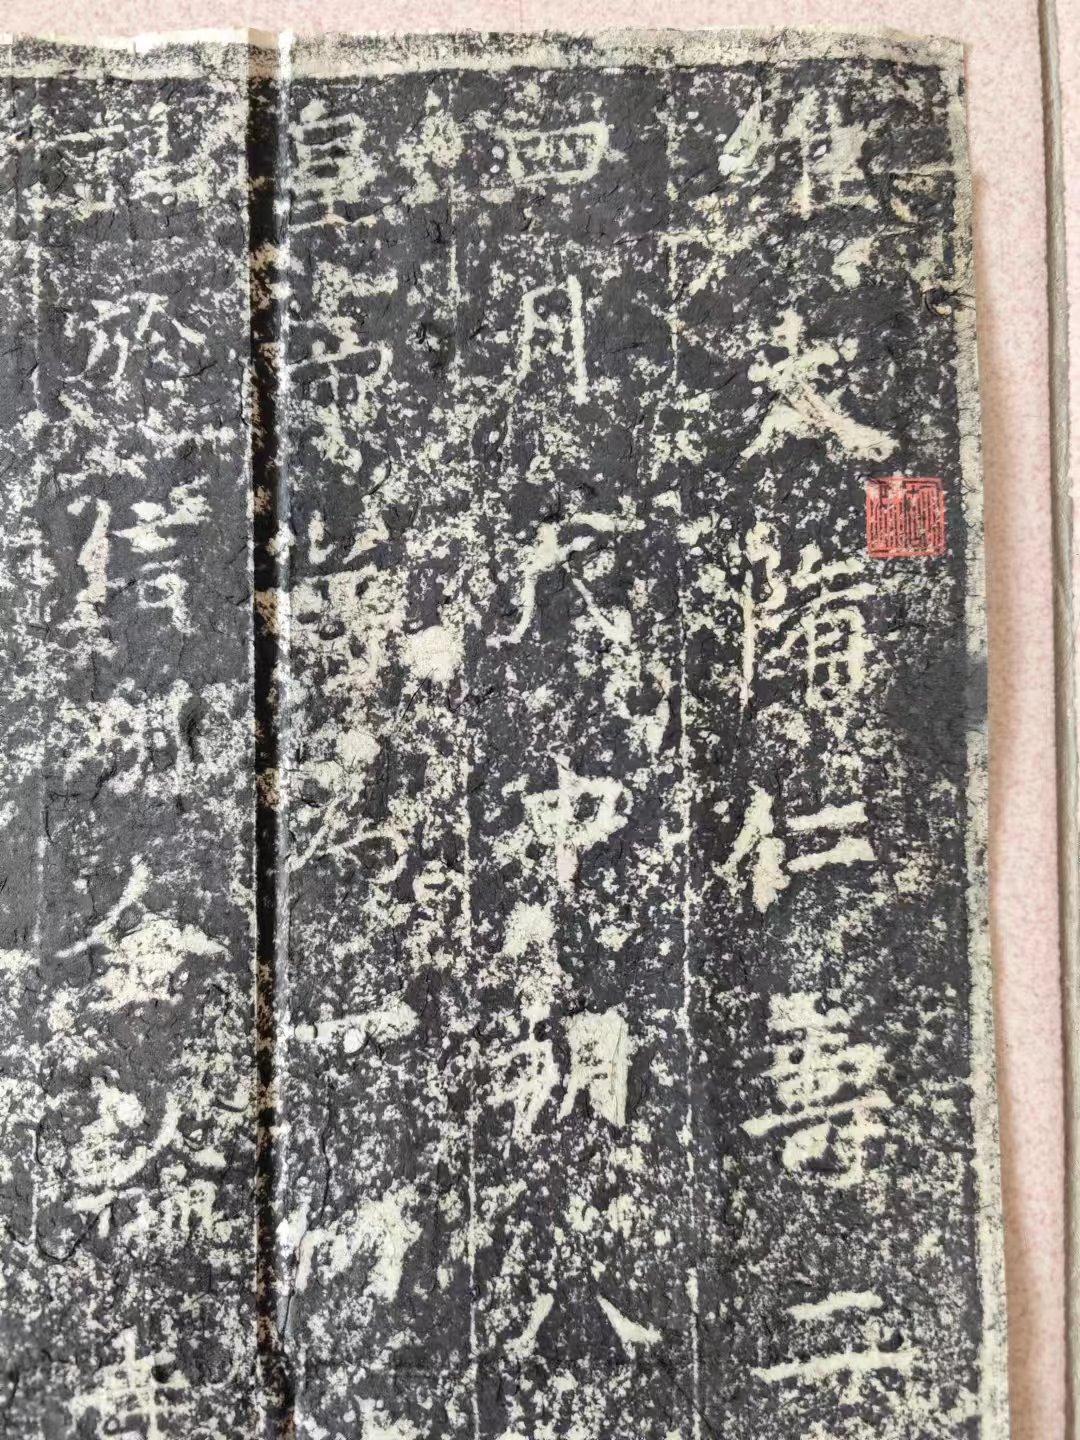 維大隋仁壽二
四月戊申朔八
皇帝普為一切
於信州金輪寺